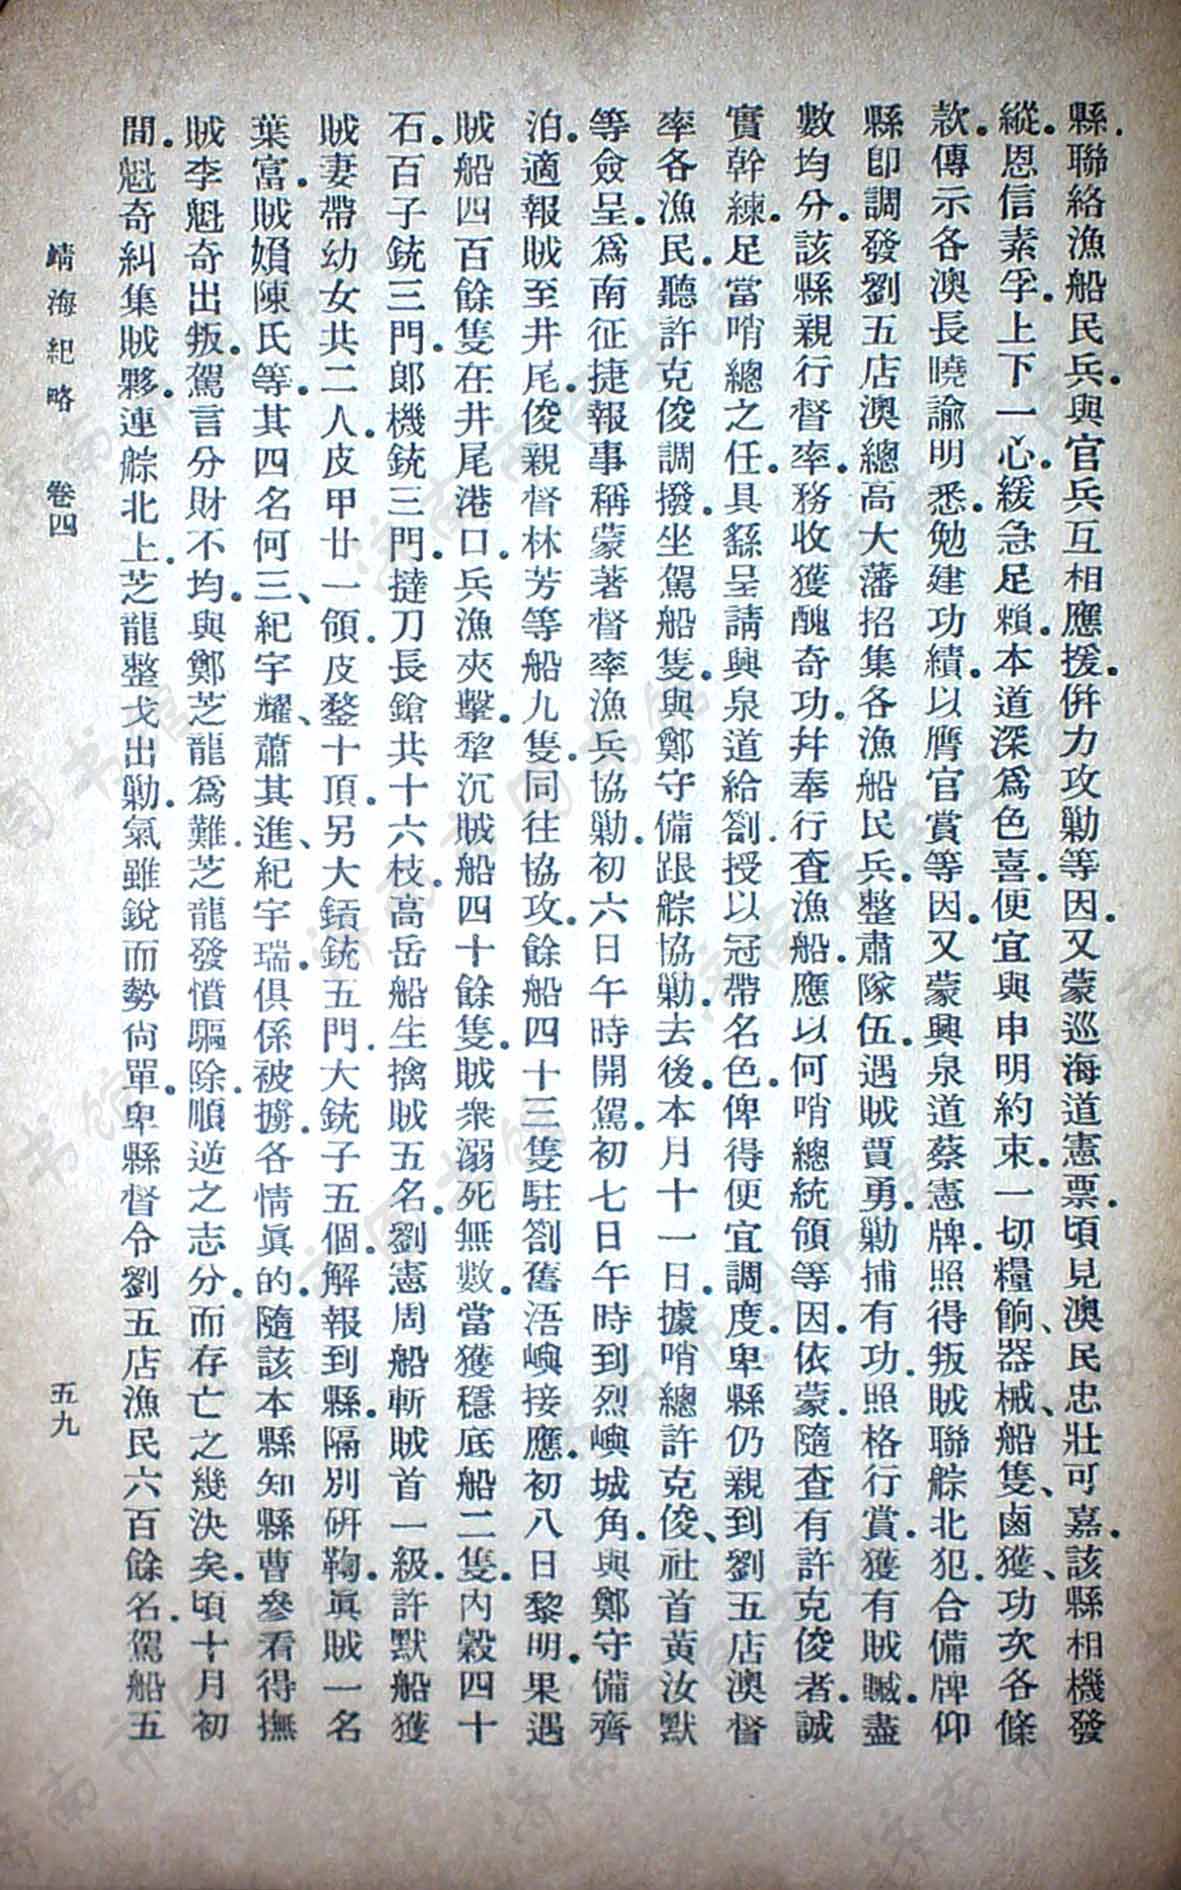 縣.聯絡漁船民兵.與官兵互相應援.併力攻勦等因.又蒙巡海道憲票.頃見澳民忠壯可嘉.該縣相機發
縱.恩信素孚.上下一心.緩急足賴.本道深爲色喜.便宜與申明約束.一切糧餉、器械、船隻、鹵獲、功次各條
款.傳示各澳長曉諭明悉.勉建功績.以膺官賞等因.又蒙興泉道蔡憲牌.照得叛賊聯䑸北犯.合備牌仰
縣卽調發劉五店澳總高大藩招集各漁船民兵.整肅隊伍.遇賊賈勇.勦捕有功.照格行賞.獲有賊贓.盡
數均分.該縣親行督率.務收獲醜奇功.幷奉行查漁船.應以何哨總統領等因.依蒙.隨查有許克俊者.誠
實幹練.足當哨總之任.具繇呈請興泉道給劄.授以冠帶名色.俾得便宜調度.卑縣仍親到劉五店澳督
率各漁民.聽許克俊調撥.坐駕船隻.與鄭守備跟䑸協勦.去後.本月十一日.據哨總許克俊、社首黃汝默
等僉呈.爲南征捷報事稱蒙著督率漁兵協勦.初六日午時開駕.初七日午時到烈嶼城角.與鄭守備齊
泊.適報賊至井尾.俊親督林芳等船九隻.同往協攻.餘船四十三隻駐劄舊浯嶼接應.初八日黎明.果遇
賊船四百餘隻在井尾港口.兵漁夾擊.犂沉賊船四十餘隻.賊衆溺死無數.當獲穩底船二隻.內穀四十
石.百子銃三門.郎機銃三門.撻刀長鎗共十六枝.高岳船生擒賊五名.劉憲周船斬賊首一級.許默船獲
賊妻帶幼女共二人.皮甲廿一領.皮鍪十頂.另大鐀銃五門.大銃子五個.解報到縣.隔別研鞫.眞賊一名
葉富.賊媍陳氏等.其四名何三、紀宇耀、蕭其進、紀宇瑞.俱係被擄.各情眞的.隨該本縣知縣曹叅看得撫
賊李魁奇出叛.駕言分財不均.與鄭芝龍爲難.芝龍發憤驅除.順逆之志分.而存亡之幾決矣.頃十月初
間.魁奇糾集賊夥.連䑸北上.芝龍整戈出勦.氣雖銳而勢尙單.卑縣督令劉五店漁民六百餘名.駕船五
靖海紀略 卷四 五九